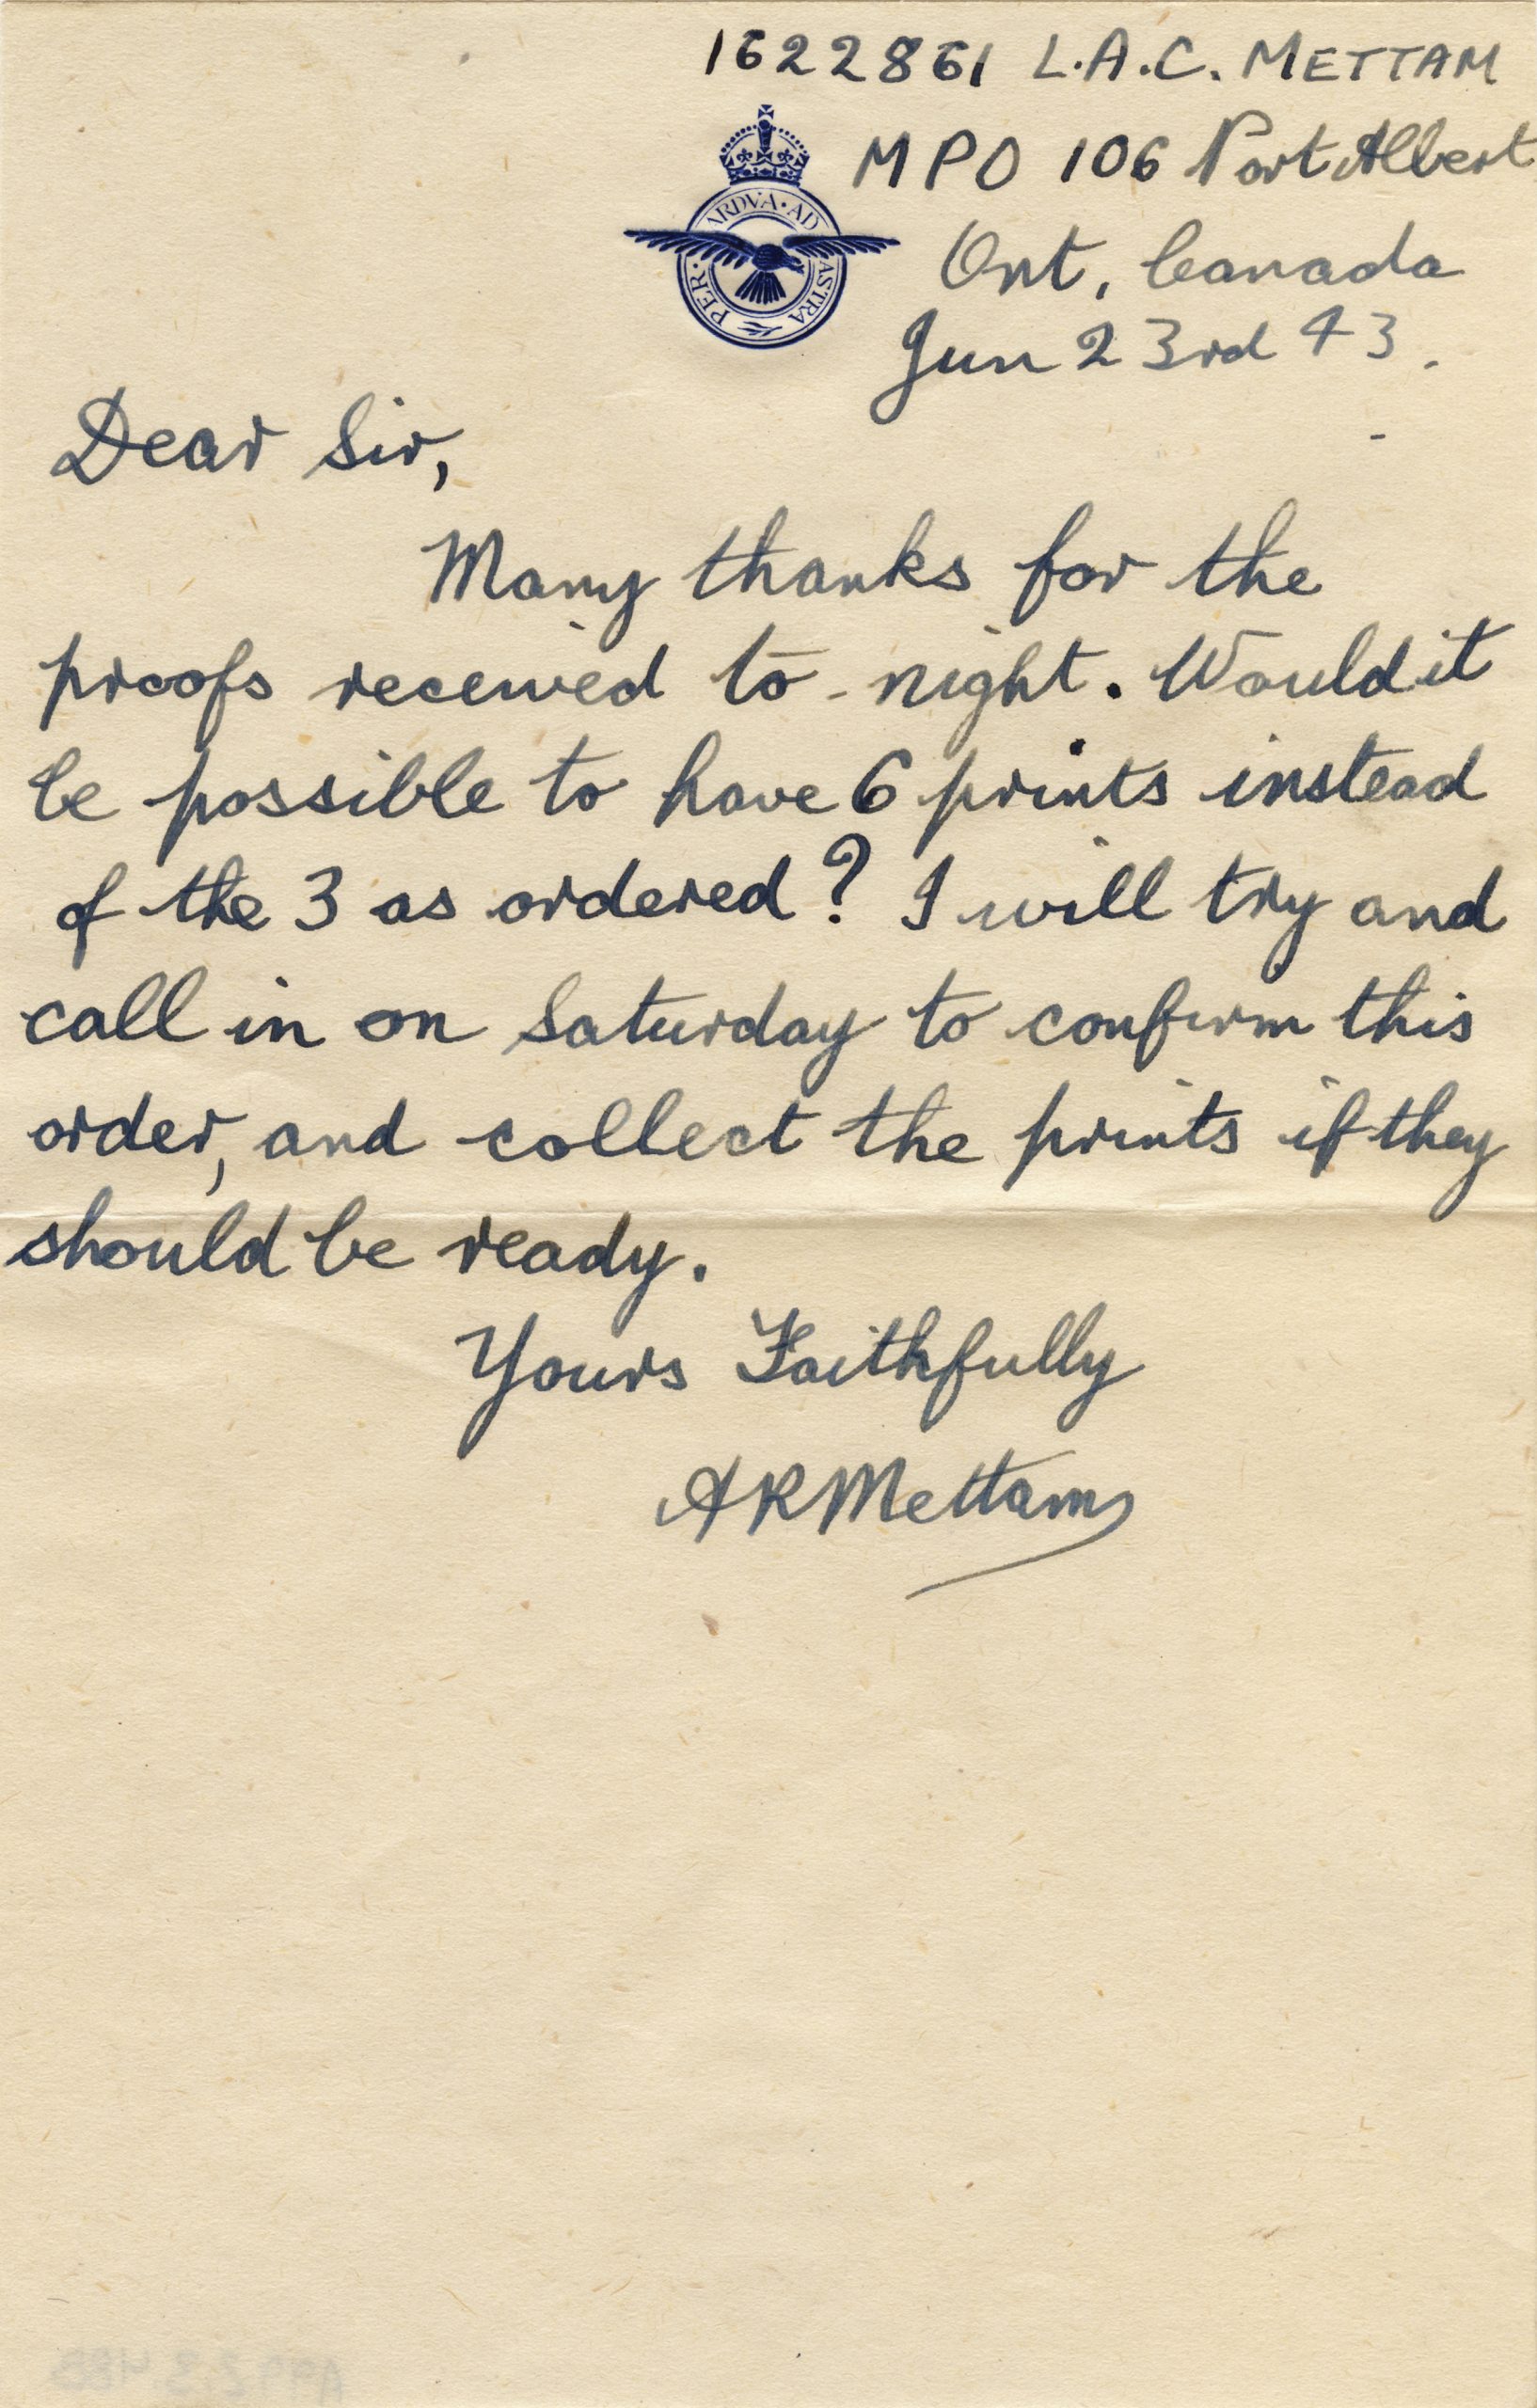 1622861 L.A.C. METTAM
MPO 106 Port Albert
PER · ARDVA · AD ASTRA
Ont, Canada
Jun 23rd 43.
Dear Sir,
Many thanks for the
proofs received to-night. Would it
be possible to have 6 prints instead
of the 3 as ordered? I will try and
call in on Saturday to confirm this
order, and collect the prints if they
should be ready.
Yours Faithfully
ARMettam